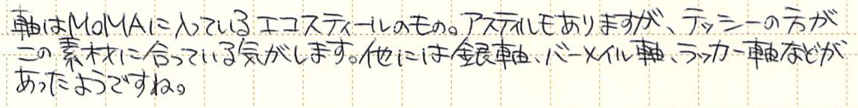 軸はMoMAに入っているエコスティールのもの。アステルモありますが、テッシーの方が
この素材に合っている気がします。他には銀軸、バーメイル軸、ラッカー軸などが
あったようですね。